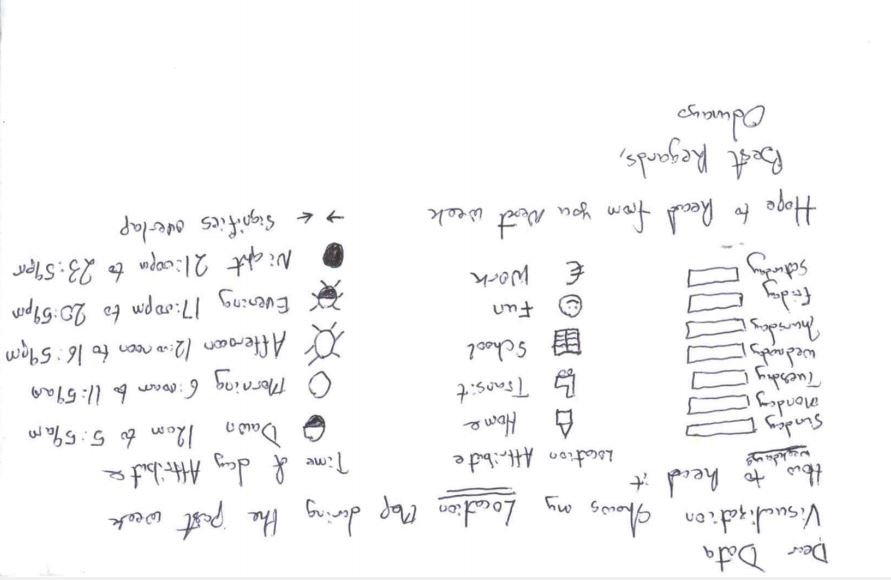 Dear Data
Visualization shows my Location Map during the past week
How to Read it
weekdays
Sunday
Monday
Tuesday
Wednesday
Thursday
Friday
Saturday
Location Attribute
Home
Transit
School
Fun
€ Work
Time of day Attribute
Dawn 12am to 5:59am
Morning 6:00am to 11:59am
Afternoon 12:00noon to 16:59pm
Evening 17:00pm to 20:59pm
Night 21:00pm to 23:59pm
→ ← Signifies overlap
Hope to Read from you Next week
Best Regards,
Odunayo